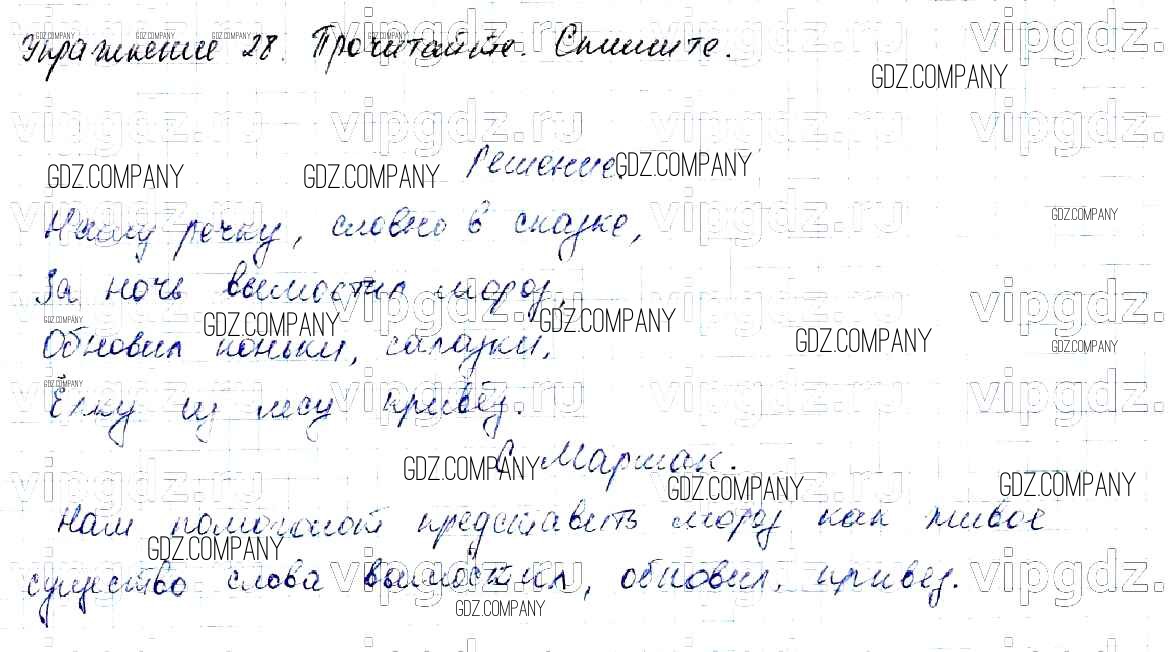 Упражнение 28. Прочитайте. Спишите.
Решение.
Нашу речку, словно в сказке,
За ночь вымостил мороз,
Обновил коньки, салазки,
Ёлку из лесу привёз.
С. Маршак.
Нам помогают представить мороз как живое
существо слова вымостил, обновил, привёз.
vipgdz.ru
GDZ.COMPANY